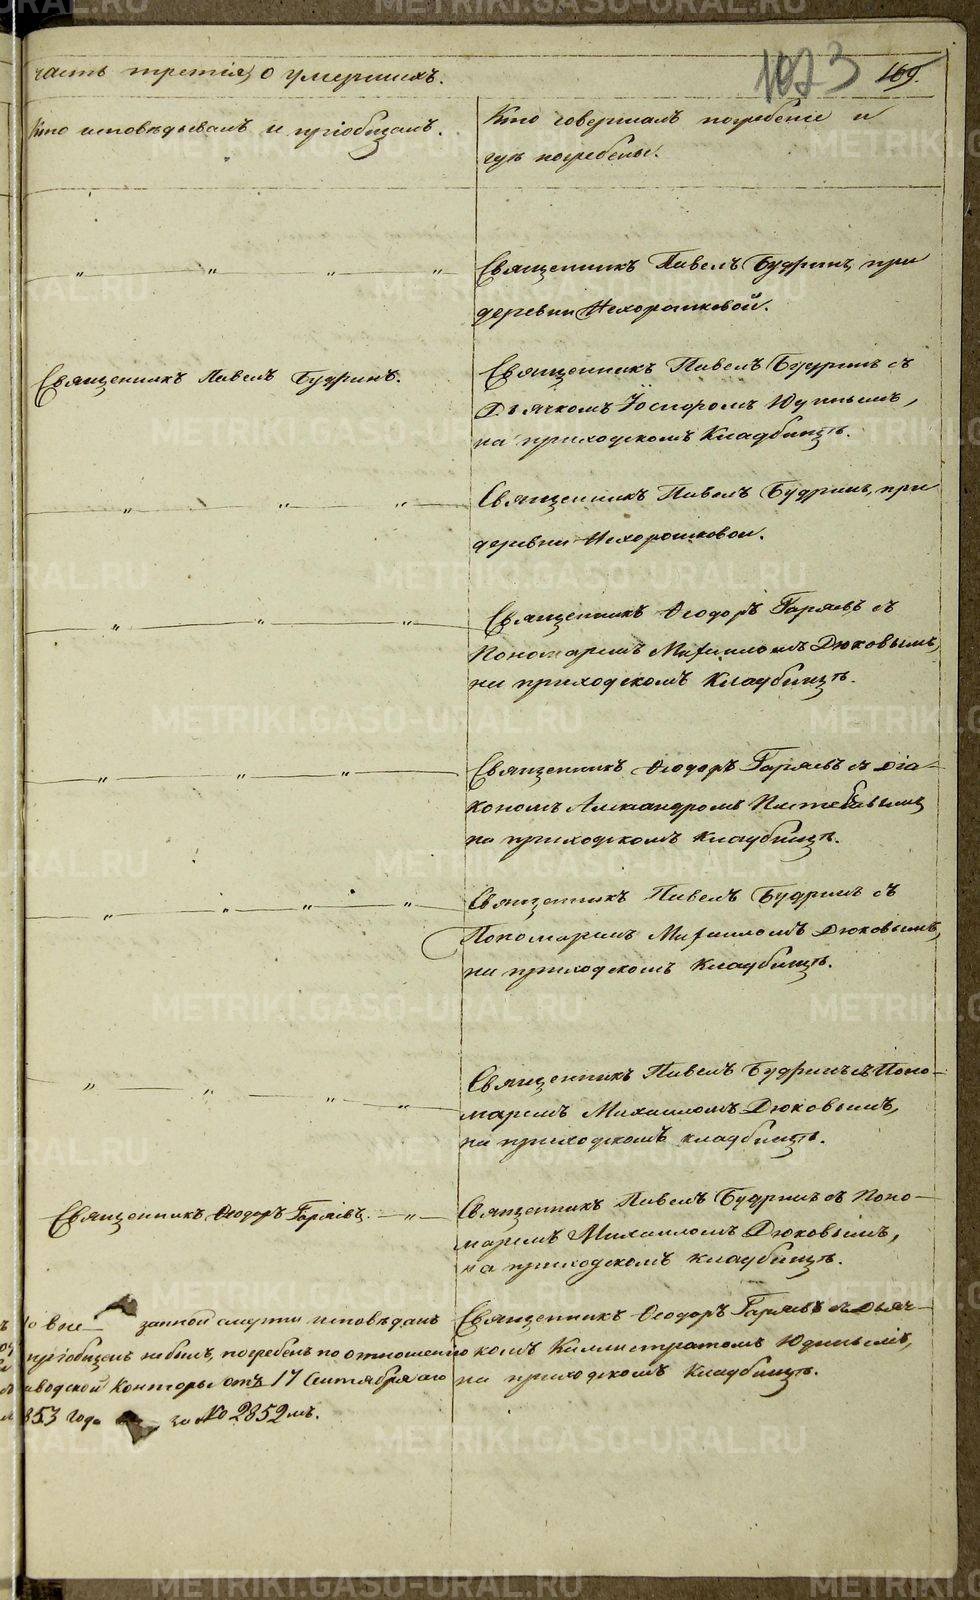 часть третія, о умершихъ.
1023
169.
Кто исповѣдывалъ и пріобщалъ.
Кто совершалъ погребеніе и
гдѣ погребены.
" " " "
Священникъ Павелъ Будринъ, при
деревни Нехорошковой.
Священникъ Павелъ Будринъ.
Священникъ Павелъ Будринъ съ
Дьячкомъ Іосифомъ Юдинымъ,
на приходскомъ Кладбищѣ.
" " "
Священникъ Павелъ Будринъ, при
деревни Нехорошковой.
" " "
Священникъ Ѳеодоръ Гаряевъ съ
Пономаремъ Михаиломъ Дюковымъ,
на приходскомъ Кладбищѣ.
" " "
Священникъ Ѳеодоръ Гаряевъ съ Діа-
кономъ Александромъ
на приходскомъ Кладбищѣ.
" " " "
Священникъ Павелъ Будринъ съ
Пономаремъ Михаиломъ Дюковымъ,
на приходскомъ Кладбищѣ.
" " " "
Священникъ Павелъ Будринъ съ Поно-
маремъ Михаиломъ Дюковымъ,
на приходскомъ кладбищѣ.
Священникъ Ѳеодоръ Гаряевъ. "
Священникъ Павелъ Будринъ съ Поно-
маремъ Михаиломъ Дюковымъ,
на приходскомъ кладбищѣ.
По вне- запной смерти исповѣданъ
пріобщенъ небылъ, погребенъ по отношенію
аводской Конторы отъ 17 Сентября сего
853 года за № 2852мъ.
Священникъ Ѳеодоръ Гаряевъ съ Дьяч-
комъ Каллистратомъ Юдинымъ,
на приходскомъ Кладбищѣ.
METRIKI.GASO-URAL.RU